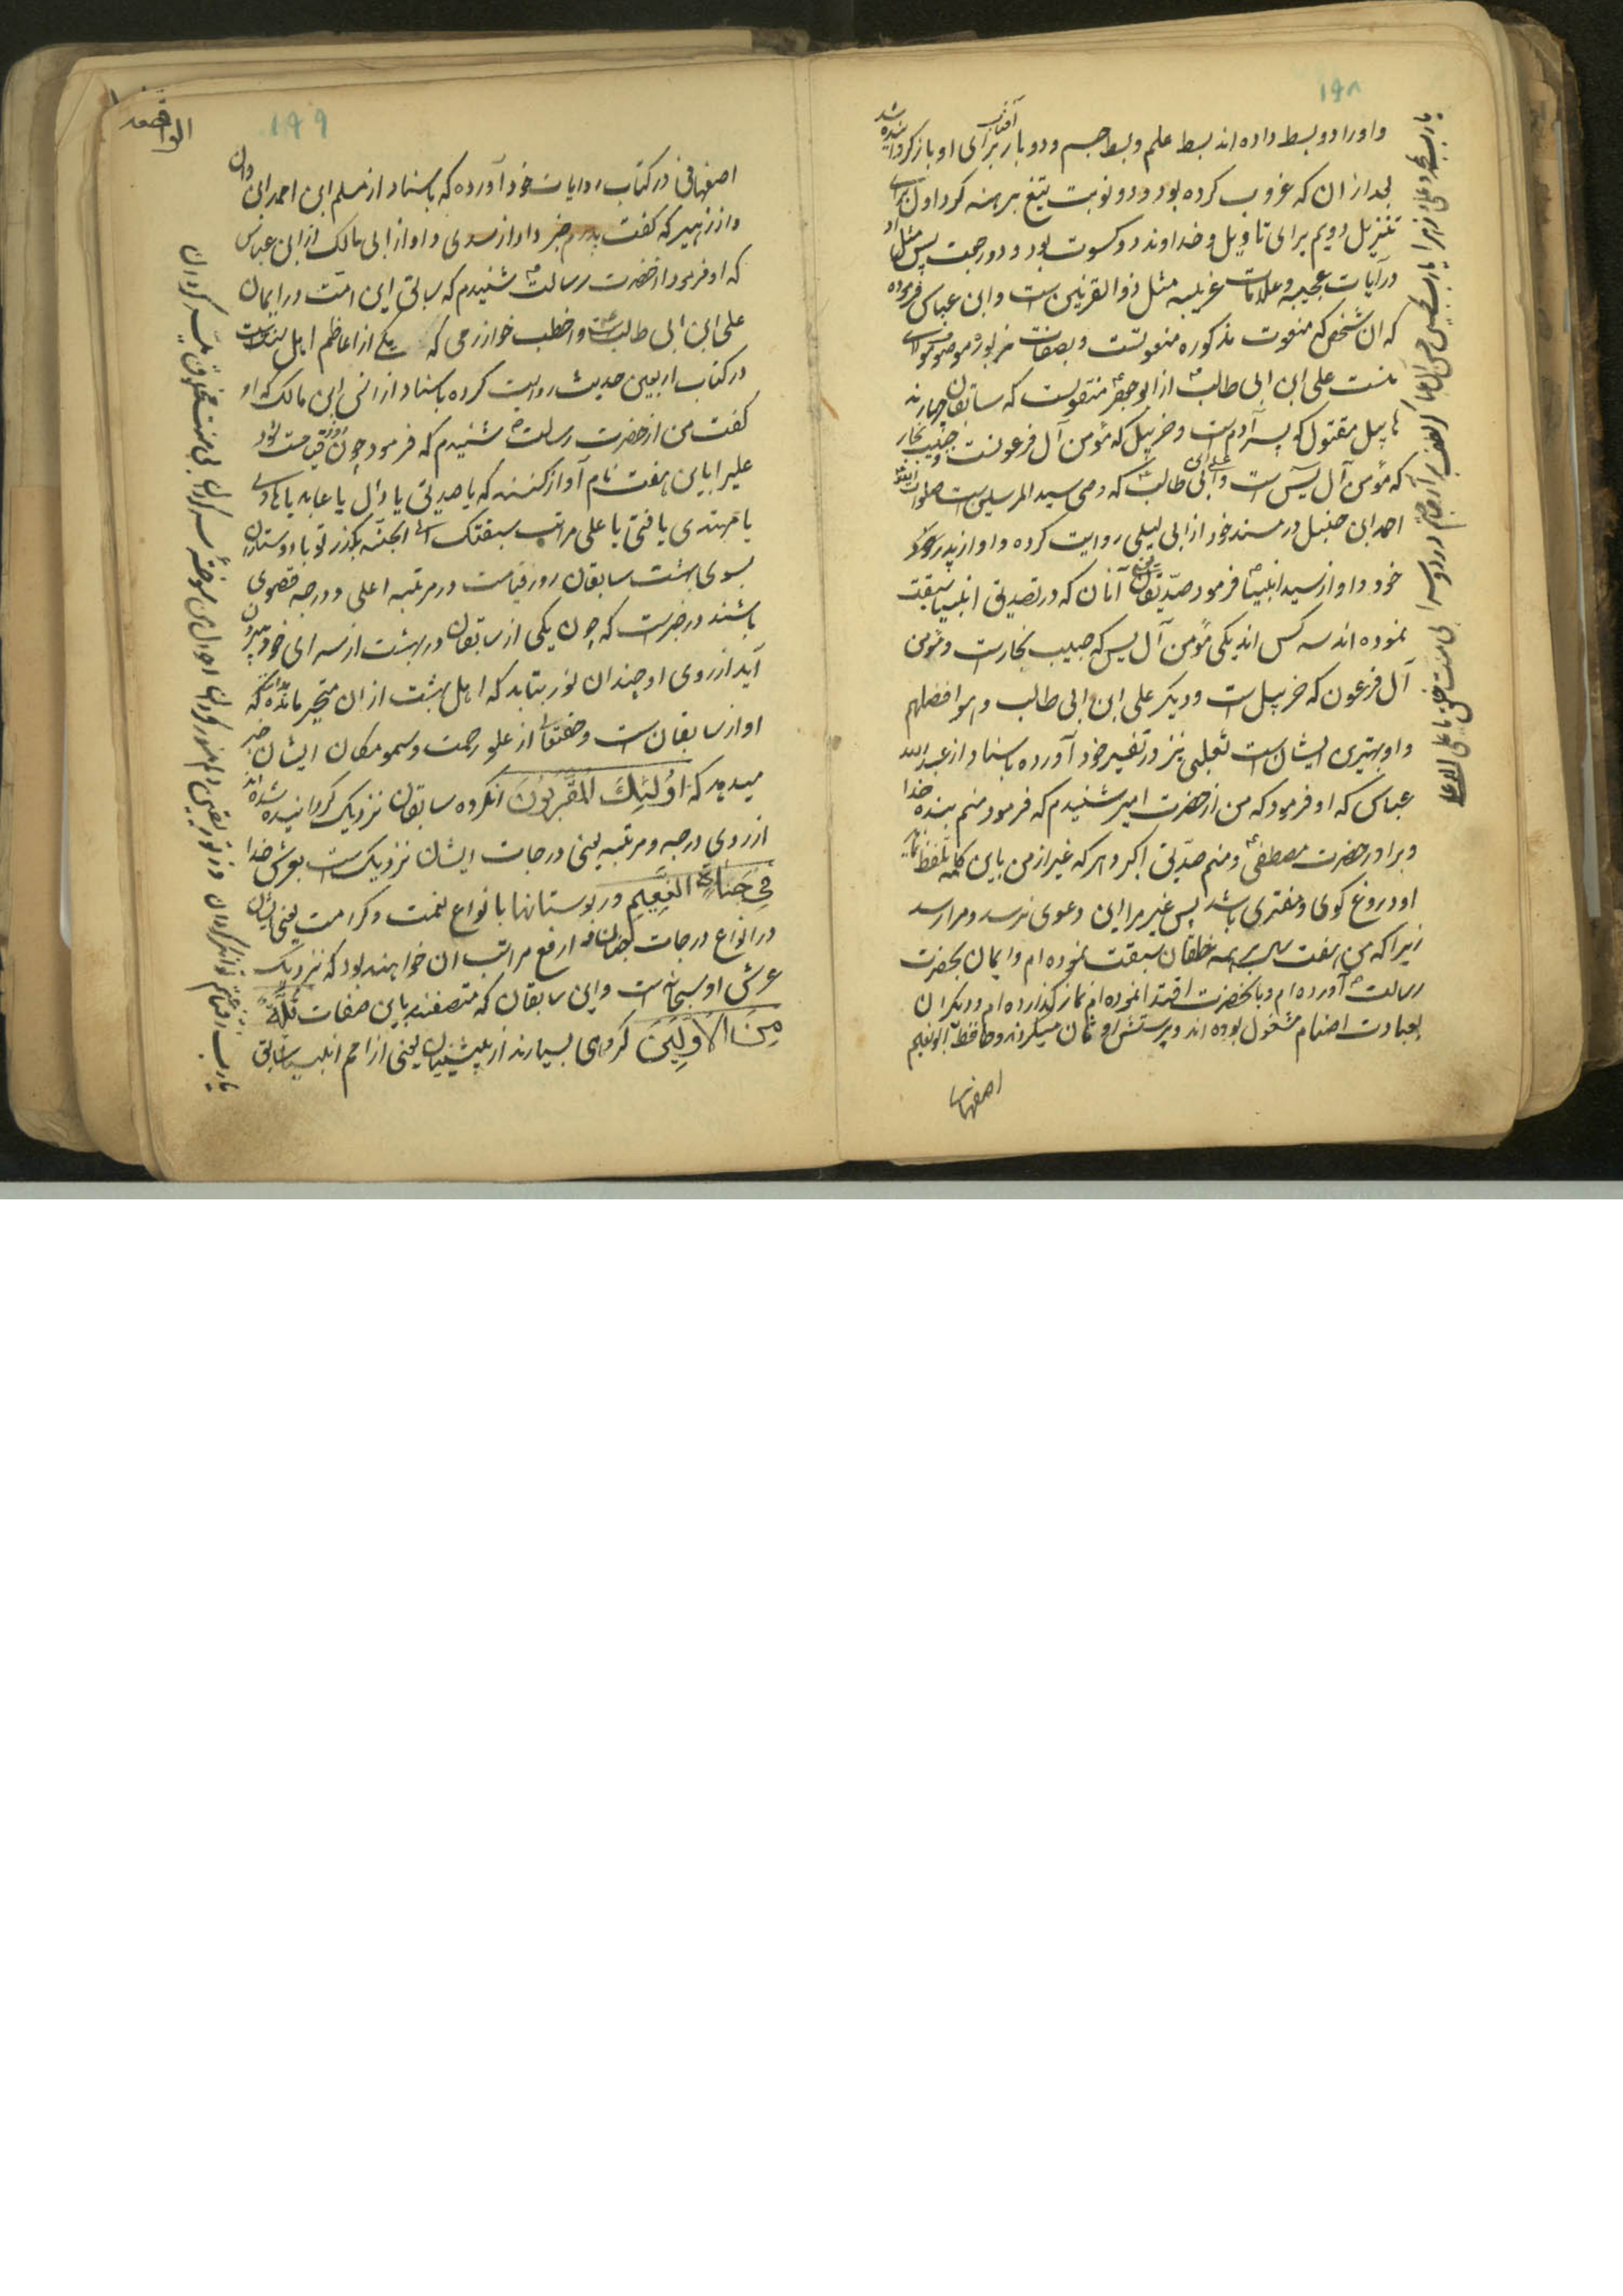 ۱۹۸
و اورا دو بسط داده اند بسط علم و بسط جسم و دو بار آفتاب برای او باز کردانیده شد
بعد از ان که غروب کرده بود و دو نوبت تیغ برهنه کرد اول برای
تنزیل دویم برای تاویل و خداوند دو کسوت بود و دو رجعت پس مثل او
در آیات عجیبه و علامات غریبه مثل ذو القرنین است و ابن عباس فرموده
که ان شخص که منعوت مذکوره منعوتست و بصفات مزبوره موصوف مولای
منست علی ابن ابی طالب از ابو جعفر منقولست که سابقان چهارند
هابیل مقتول که پسر آدم است و خربیل که مؤمن آل فرعونست و حبیب نجار
که مؤمن آل یس است و علی ابن ابی طالب که وصی سید المرسلین است صلوات الله
احمد ابن حنبل در مسند خود از ابی لیلی روایت کرده و او از پدر
خود و او از سید انبیا فرمود صدیقان یعنی آنان که در تصدیق انبیا سبقت
نموده اند سه کس اند یکی مؤمن آل یس که حبیب نجارست و مؤمن
آل فرعون که خربیل است و دیکر علی ابن ابی طالب و هو افضلهم
و او بهترین ایشان است ثعلبی نیز در تفسیر خود آورده باسناد از عبد الله
عباس که او فرمود که من از حضرت امیر شنیدم که فرمود منم بنده خدا
و برادر حضرت مصطفی و منم صدیق اکبر و هر که غیر از من باین کلمه تلفظ نماید
او دروغ کوی و مفتری باشد پس غیر مرا این دعوی نرسد و مرا رسد
زیرا که من هفت سال بر همه خلقان سبقت نموده ام و ایمان بحضرت
رسالت آورده ام و بآنحضرت اقتدا نموده ام نماز کذارده ام و دیکران
بعبادت اصنام مشغول بوده اند و پرستش اوثان میکردند و حافظ ابو نعیم
اصفهانی
۱۹۹
الواقعه
اصفهانی در کتاب روایات خود آورده که باسناد از مسلم ابن احمد ابن
و از زهیر که گفت پدرم خبر داد از سدی و او از ابی مالک از ابن عباس
که او فرمود از حضرت رسالت شنیدم که سابق این امت در ایمان
علی ابن ابی طالب است و اخطب خوارزمی که یکی از اعاظم اهل سنت است
در کتاب اربعین حدیث روایت کرده باسناد از انس ابن مالک که او
گفت من از حضرت رسالت شنیدم که فرمود چون روز قیامت شود
علی را باین هفت نام آواز کنند که یا صدیق یا دال یا عابد یا هادی
یا مهتدی یا فتی یا علی مر انت و شیعتک الی الجنه بکذر تو با دوستان
بسوی بهشت سابقان روز قیامت در مرتبه اعلی و درجه قصوی
باشند در خبرست که چون یکی از سابقان در بهشت از سرای خود بیرون
آید از روی او چندان نور بتابد که اهل بهشت از ان متحیر مانده بدانند که
او از سابقان است و حقتعالی از علو رحمت و سمو مکان ایشان خبر
میدهد که اُولٰئِكَ الْمُقَرَّبُونَ انکروه سابقان نزدیک کردانیده شده اند
از روی درجه و مرتبه یعنی درجات ایشان نزدیک است بعرش خدا
فِي جَنَّاتِ النَّعِيمِ در بوستانها با انواع نعمت و کرامت یعنی ایشان
در انواع درجات جنان در ارفع مراتب ان خواهند بود که نزدیک
عرش او سبحانه است و این سابقان که متصفند باین صفات ثُلَّةٌ
مِنَ الْأَوَّلِينَ کروهی بسیارند از پیشینیان یعنی از امم انبیا سابق